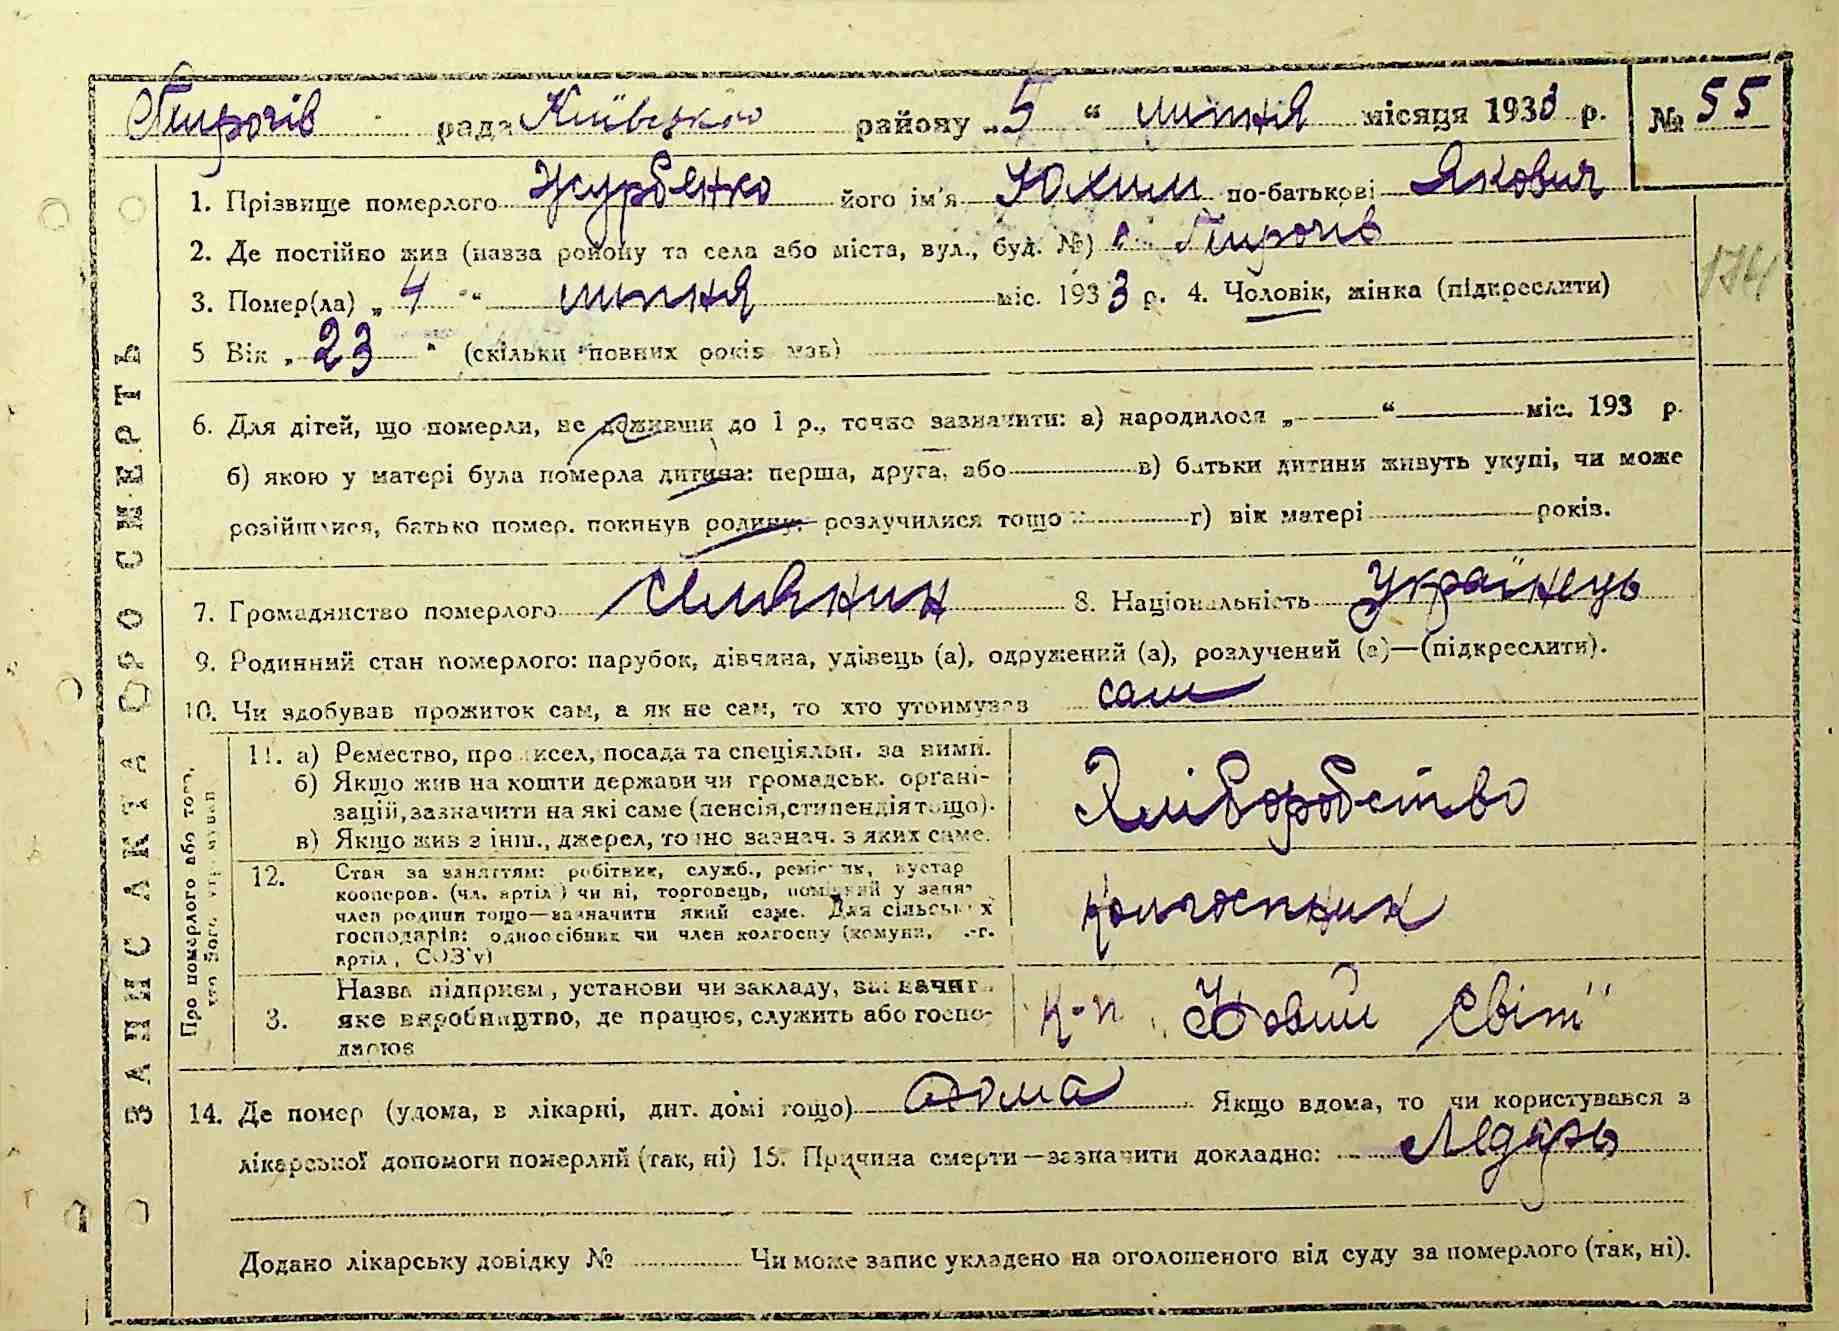 Пирогів рада Київського району „5“ липня місяця 1933 р. № 55
1. Прізвище померлого Журбенко його ім'я Юхим по-батькові Якович
2. Де постійно жив (назва району та села або міста, вул., буд. №) с. Пирогів
3. Помер(ла) „4“ липня міс. 1933 р. 4. Чоловік, жінка (підкреслити)
174
5 Вік „23“ (скільки повних років мав)
6. Для дітей, що померли, не доживши до 1 р., точно зазначити: а) народилося „ “ міс. 193 р.
б) якою у матері була померла дитина: перша, друга, або в) батьки дитини живуть укупі, чи може
розійшлися, батько помер. покинув родину: розлучилися тощо г) вік матері років.
7. Громадянство померлого селянин 8. Національність Українець
9. Родинний стан померлого: парубок, дівчина, удівець (а), одружений (а), розлучений (а)—(підкреслити).
10. Чи здобував прожиток сам, а як не сам, то хто утримував сам
11. а) Ремество, промисел, посада та спеціяльн. за ними.
б) Якщо жив на кошти держави чи громадськ. органі-
зацій, зазначити на які саме (пенсія, стипендія тощо).
в) Якщо жив з інш., джерел, точно зазнач. з яких саме.
Хліборобство
12. Стан за заняттям: робітник, служб., ремісник, кустар
кооперов. (чл. артіл) чи ні, торговець, помічний у занят
член родини тощо—зазначити який саме. Для сільських
господарів: одноосібник чи член колгоспу (комуни, с.-г.
артіл, СОЗ'у)
колгоспник
3. Назва підприєм, установи чи закладу, зазначит
яке виробництво, де працює, служить або госпо-
дарює
к-п „Новий Світ"
14. Де помер (удома, в лікарні, дит. домі тощо) дома Якщо вдома, то чи користувався з
лікарської допомоги померлий (так, ні) 15. Причина смерти—зазначити докладно:
Додано лікарську довідку № Чи може запис укладено на оголошеного від суду за померлого (так, ні).
ЗАПИС АКТА ПРО СМЕРТЬ
Про померлого або того,
хто його утримував